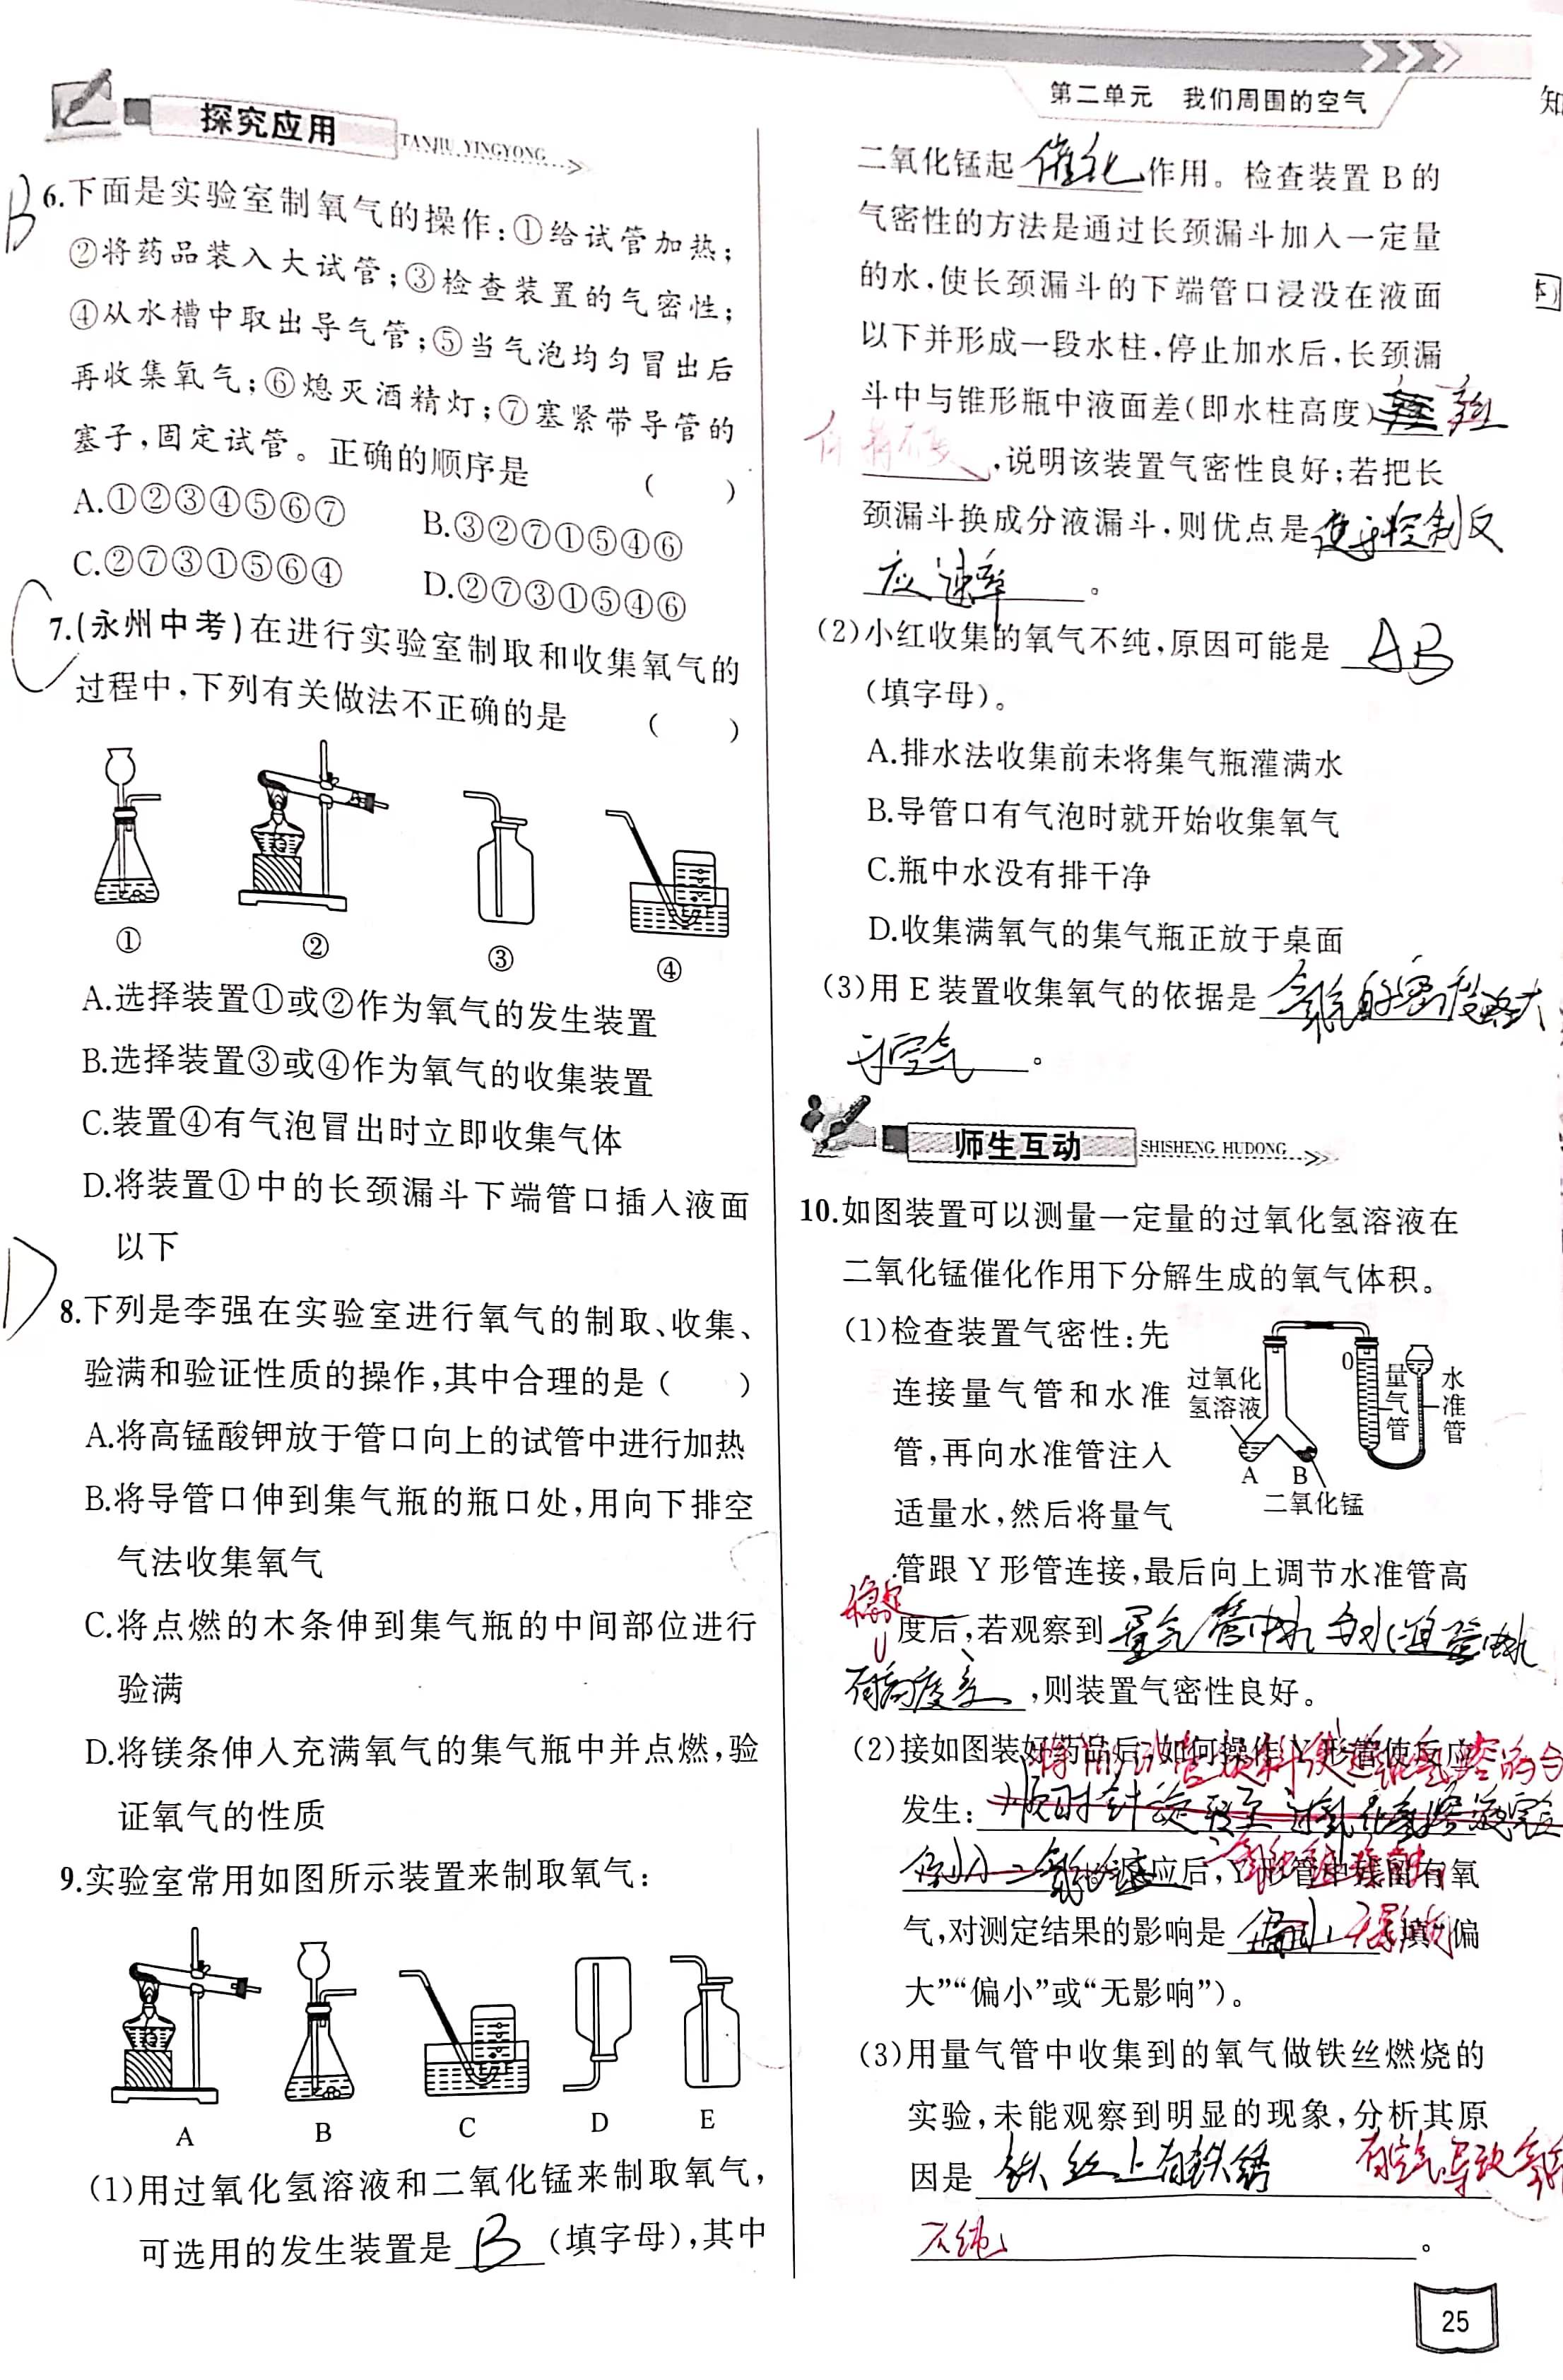 第二单元 我们周围的空气
知
探究应用
TANJIU YINGYONG
B
6.下面是实验室制氧气的操作:①给试管加热;
②将药品装入大试管;③检查装置的气密性;
④从水槽中取出导气管;⑤当气泡均匀冒出后
再收集氧气;⑥熄灭酒精灯;⑦塞紧带导管的
塞子,固定试管。正确的顺序是 ( )
A.①②③④⑤⑥⑦ B.③②⑦①⑤④⑥
C.②⑦③①⑤⑥④ D.②⑦③①⑤④⑥
C
7.(永州中考)在进行实验室制取和收集氧气的
过程中,下列有关做法不正确的是 ( )
① ② ③ ④
A.选择装置①或②作为氧气的发生装置
B.选择装置③或④作为氧气的收集装置
C.装置④有气泡冒出时立即收集气体
D.将装置①中的长颈漏斗下端管口插入液面
以下
D
8.下列是李强在实验室进行氧气的制取、收集、
验满和验证性质的操作,其中合理的是( )
A.将高锰酸钾放于管口向上的试管中进行加热
B.将导管口伸到集气瓶的瓶口处,用向下排空
气法收集氧气
C.将点燃的木条伸到集气瓶的中间部位进行
验满
D.将镁条伸入充满氧气的集气瓶中并点燃,验
证氧气的性质
9.实验室常用如图所示装置来制取氧气:
A B C D E
(1)用过氧化氢溶液和二氧化锰来制取氧气,
可选用的发生装置是 B (填字母),其中
二氧化锰起 催化 作用。检查装置B的
气密性的方法是通过长颈漏斗加入一定量
的水,使长颈漏斗的下端管口浸没在液面
以下并形成一段水柱,停止加水后,长颈漏
斗中与锥形瓶中液面差(即水柱高度)
保持不变,说明该装置气密性良好;若把长
颈漏斗换成分液漏斗,则优点是 便于控制反
应速率。
(2)小红收集的氧气不纯,原因可能是 AB
(填字母)。
A.排水法收集前未将集气瓶灌满水
B.导管口有气泡时就开始收集氧气
C.瓶中水没有排干净
D.收集满氧气的集气瓶正放于桌面
(3)用E装置收集氧气的依据是 氧气的密度略大
于空气。
师生互动
SHISHENG HUDONG
10.如图装置可以测量一定量的过氧化氢溶液在
二氧化锰催化作用下分解生成的氧气体积。
(1)检查装置气密性:先
连接量气管和水准
管,再向水准管注入
适量水,然后将量气
过氧化
氢溶液
0
量气管
水准管
A B
二氧化锰
管跟Y形管连接,最后向上调节水准管高
稳定
度后,若观察到 量气管中水与水准管中水
有高度差,则装置气密性良好。
(2)按如图装好药品后,如何操作Y形管使反应
发生:顺时针旋转至过氧化氢溶液完全
应后,Y形管中残留有氧
气,对测定结果的影响是 偏小 无影响(填“偏
大”“偏小”或“无影响”)。
(3)用量气管中收集到的氧气做铁丝燃烧的
实验,未能观察到明显的现象,分析其原
因是 铁丝上有铁锈 有空气导致氧气
不纯。
25